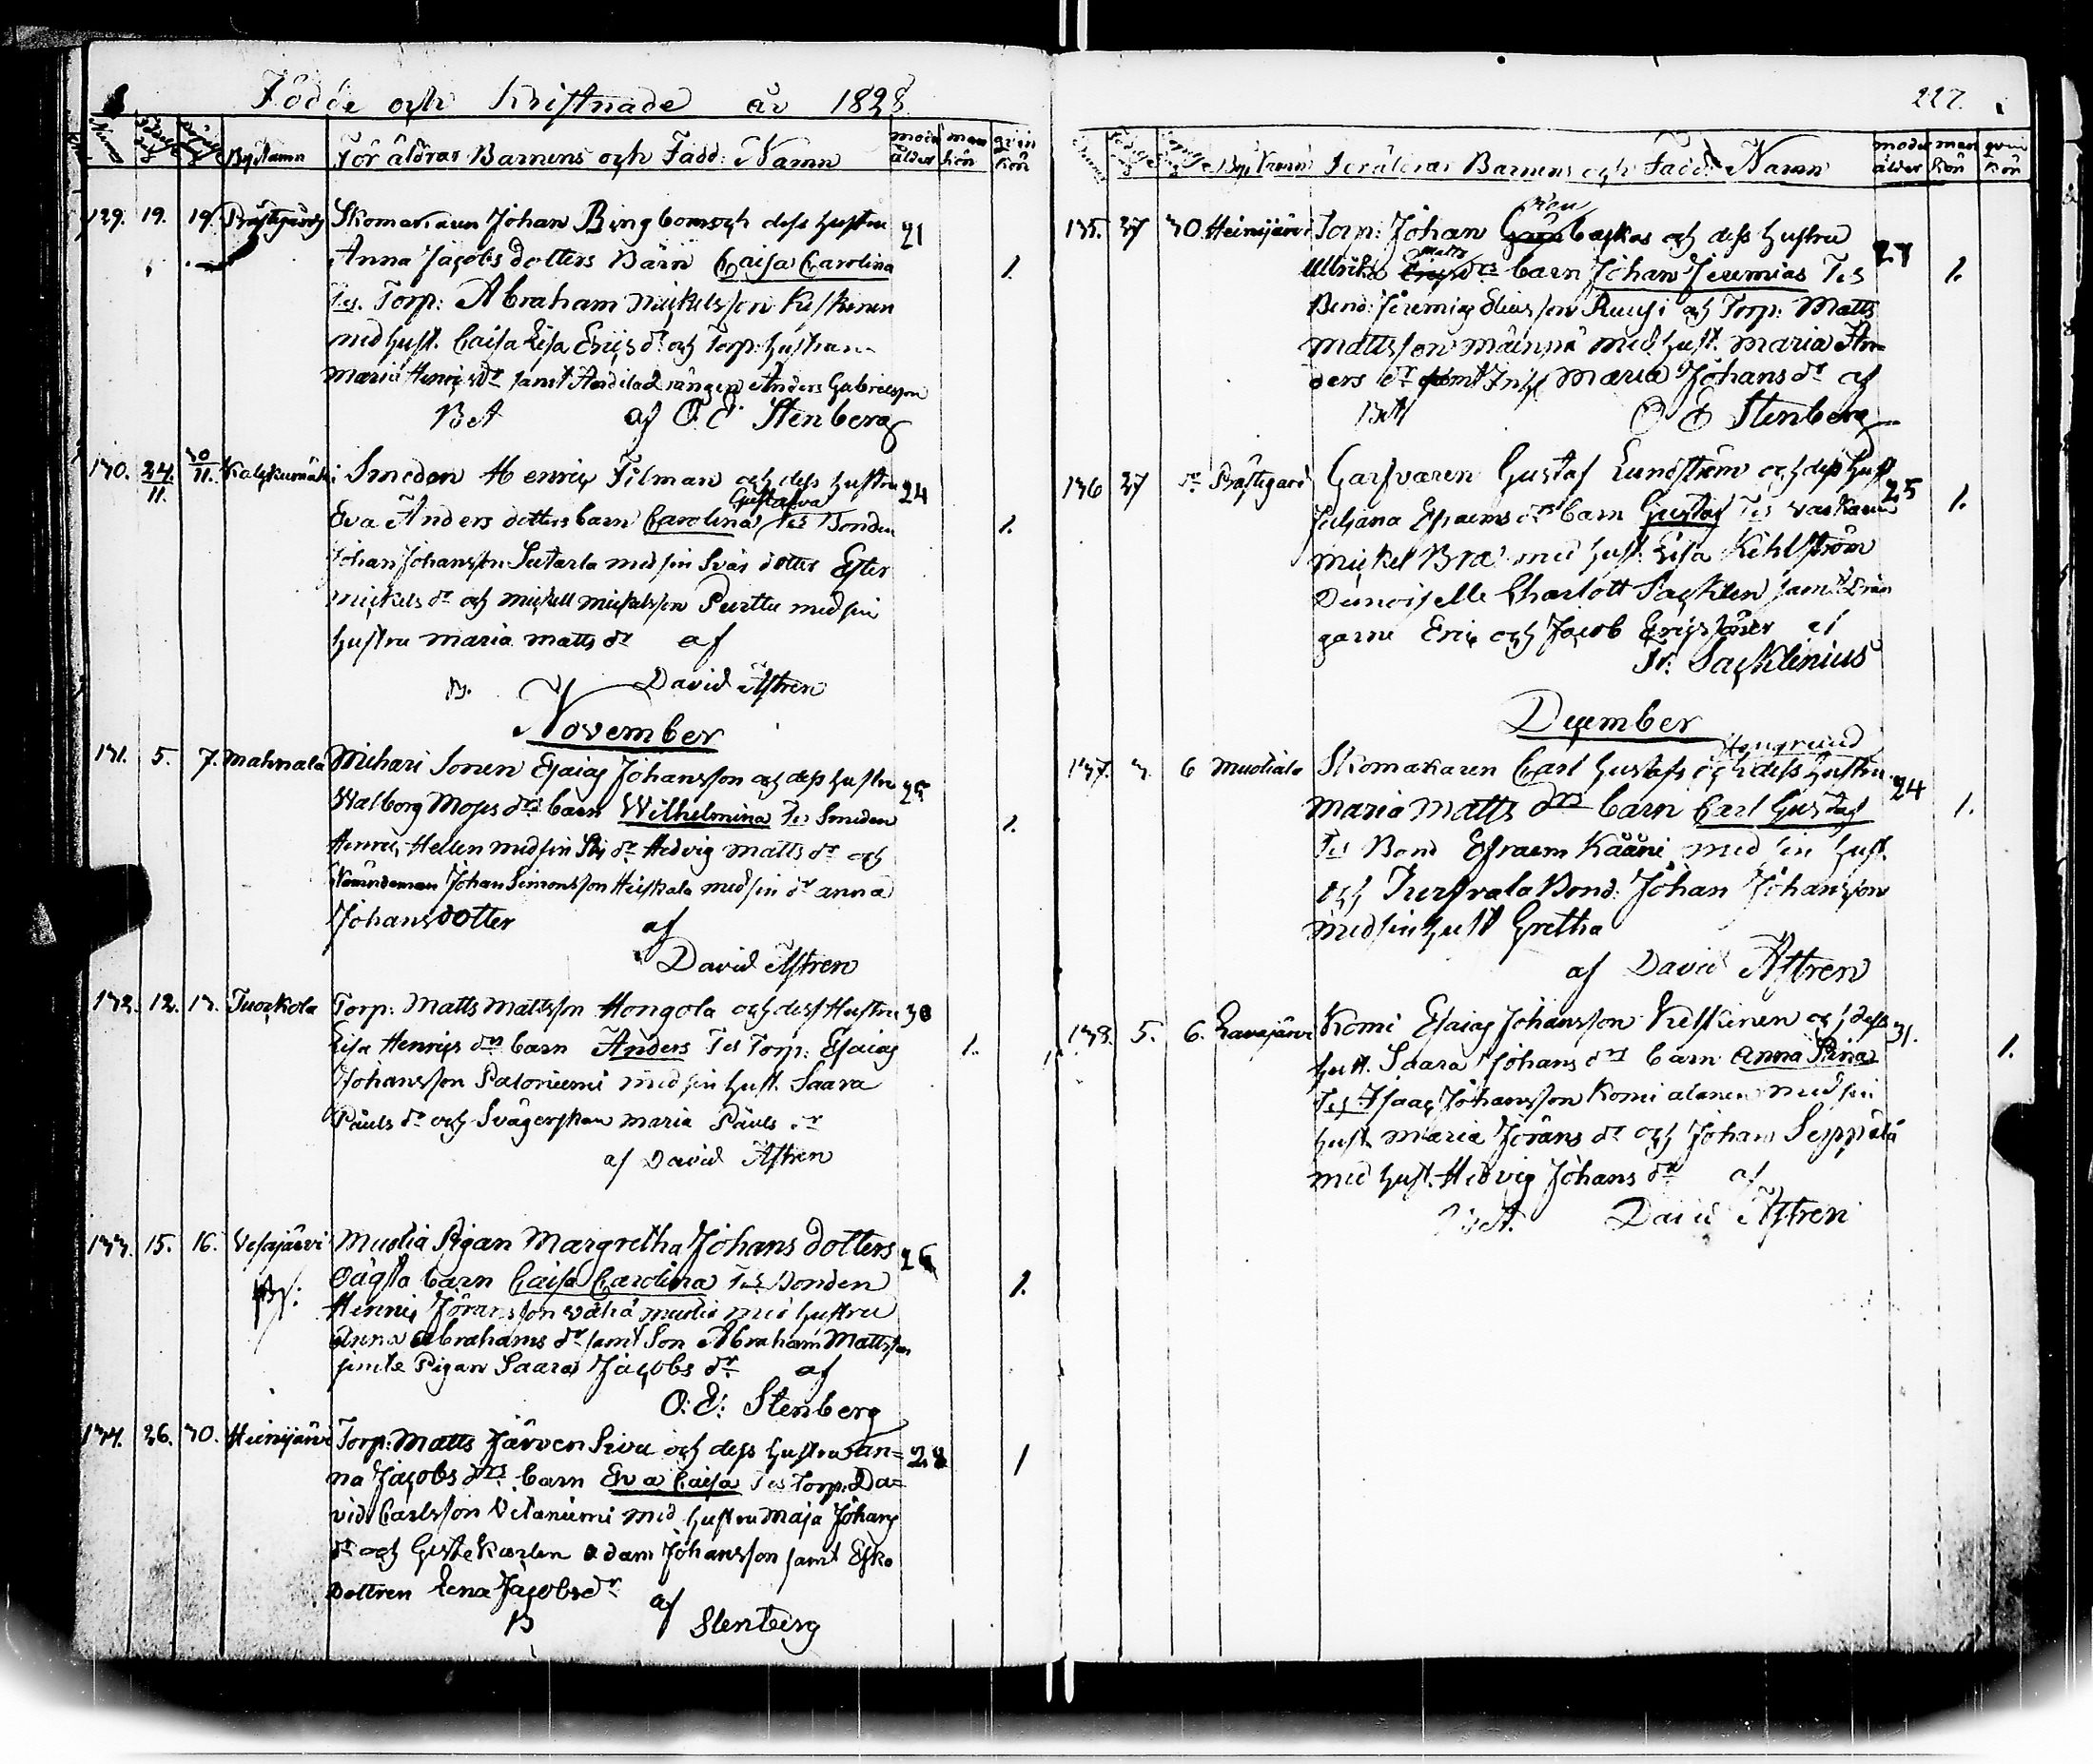 Födde och Kristnade år 1828
By Namn Föräldras Barnens och Fadd: Namn moder ålder man kön qvin kön
129. 19. 19. Prästgård Skomakaren Johan Bingbom och dess hustru 21
Anna Jacobs dotters Barn Caisa Carolina 1.
Tes. Torp: Abraham Mickelsson Keskinen
med hust. Caisa Lisa Erics dr och Torp: hustran
Maria Henrics dr samt Anders Gabrielsson
BA af O. E. Stenberg
130. 24/11. 30/11. Smeden Henric Filman och dess hustru 24
Gustafva
Eva Anders dotters barn Carolina Tes Bonden 1.
Johan Johansson med sin Svär dotter Ester
Mickels dr och Mickell Mickelsson Purttu med sin
hustru Maria Matts dr af
B. David Åstren
November
131. 5. 7. Mahnala Mihari Sonen Esaias Johansson och dess hustru 25
Walborg Moses drs barn Wilhelmina Tes Smeden 1.
Henric Hellen med sin dr Hedvig Matts dr och
Nämndeman Johan Simonsson Heiskala med sin dr Anna
Johans dotter af
David Åstren
132. 12. 13. Tuockola Torp: Matts Mattsson Hongola och dess Hustru 30
Lisa Henrics drs barn Anders Tes Torp: Esaias 1.
Johansson Paloniemi med sin hust. Saara
Pauls dr och Svägerskan Maria Pauls dr
af David Åstren
133. 15. 16. Vesajärvi Muotia Pigan Margretha Johans dotters 26
Oägta barn Caisa Carolina Tes Bonden 1.
Henric Jöransson vähä muotia med hustru
Anna Abrahams dr samt Son Abraham Mattsson
samt Pigan Saara Jacobs dr af
O. E. Stenberg
134. 26. 30. Heinijärvi Torp: Matts Järven Sivu och dess hustru An= 28
na Jacobs drs barn Eva Caisa Tes Torp: Da= 1
vid Carlsson Vetaniemi med hustru Maja Johans
dr och Geste Karlen Adam Johansson samt Esko
Dottren Lena Jacobs dr af
B Stenberg
227.
By Namn Föräldras Barnens och Fadd: Namn moder ålder man kön qvin kön
135. 27 30 Heinijärvi Torp: Johan baskas och dess hustru 27
Matts
Ulrika drs barn Johan Jeremias Tes 1.
Bond: Jeremias Eliasson Ruusi och Torp: Matts
Mattsson Männä med hust. Maria An=
ders dr samt Inh Maria Johans dr af
BA O E Stenberg
136 27 Prästgård Garfvaren Gustaf Lundström och dess hust 25
Juliana Efraims drs barn Gustaf Tes 1.
Mickel Bra med hust. Lisa Kihlström
Demoiselle Charlott Sacklen samt Drän
garne Eric och Jacob Ericssöner af
Sacklinius
December
137. 3. 6 Muotiala Skomakaren Carl Gustafs och dess hustru 24
Maria Matts drs barn Carl Gustaf 1.
Tes Bond Efraem Kääni med sin hust.
och Bond: Johan Johansson
med sin hust Gretha
af David Åstren
138. 5. 6. Lavajärvi Komi Esaias Johansson Keskinen och dess 31.
hust. Saara Johans drs barn Anna Stina 1.
Tes Isaac Johansson Komi alanen med sin
hust. Maria Jörans dr och Johan Seppälä
med hust. Hedvig Johans dr af
David Åstren